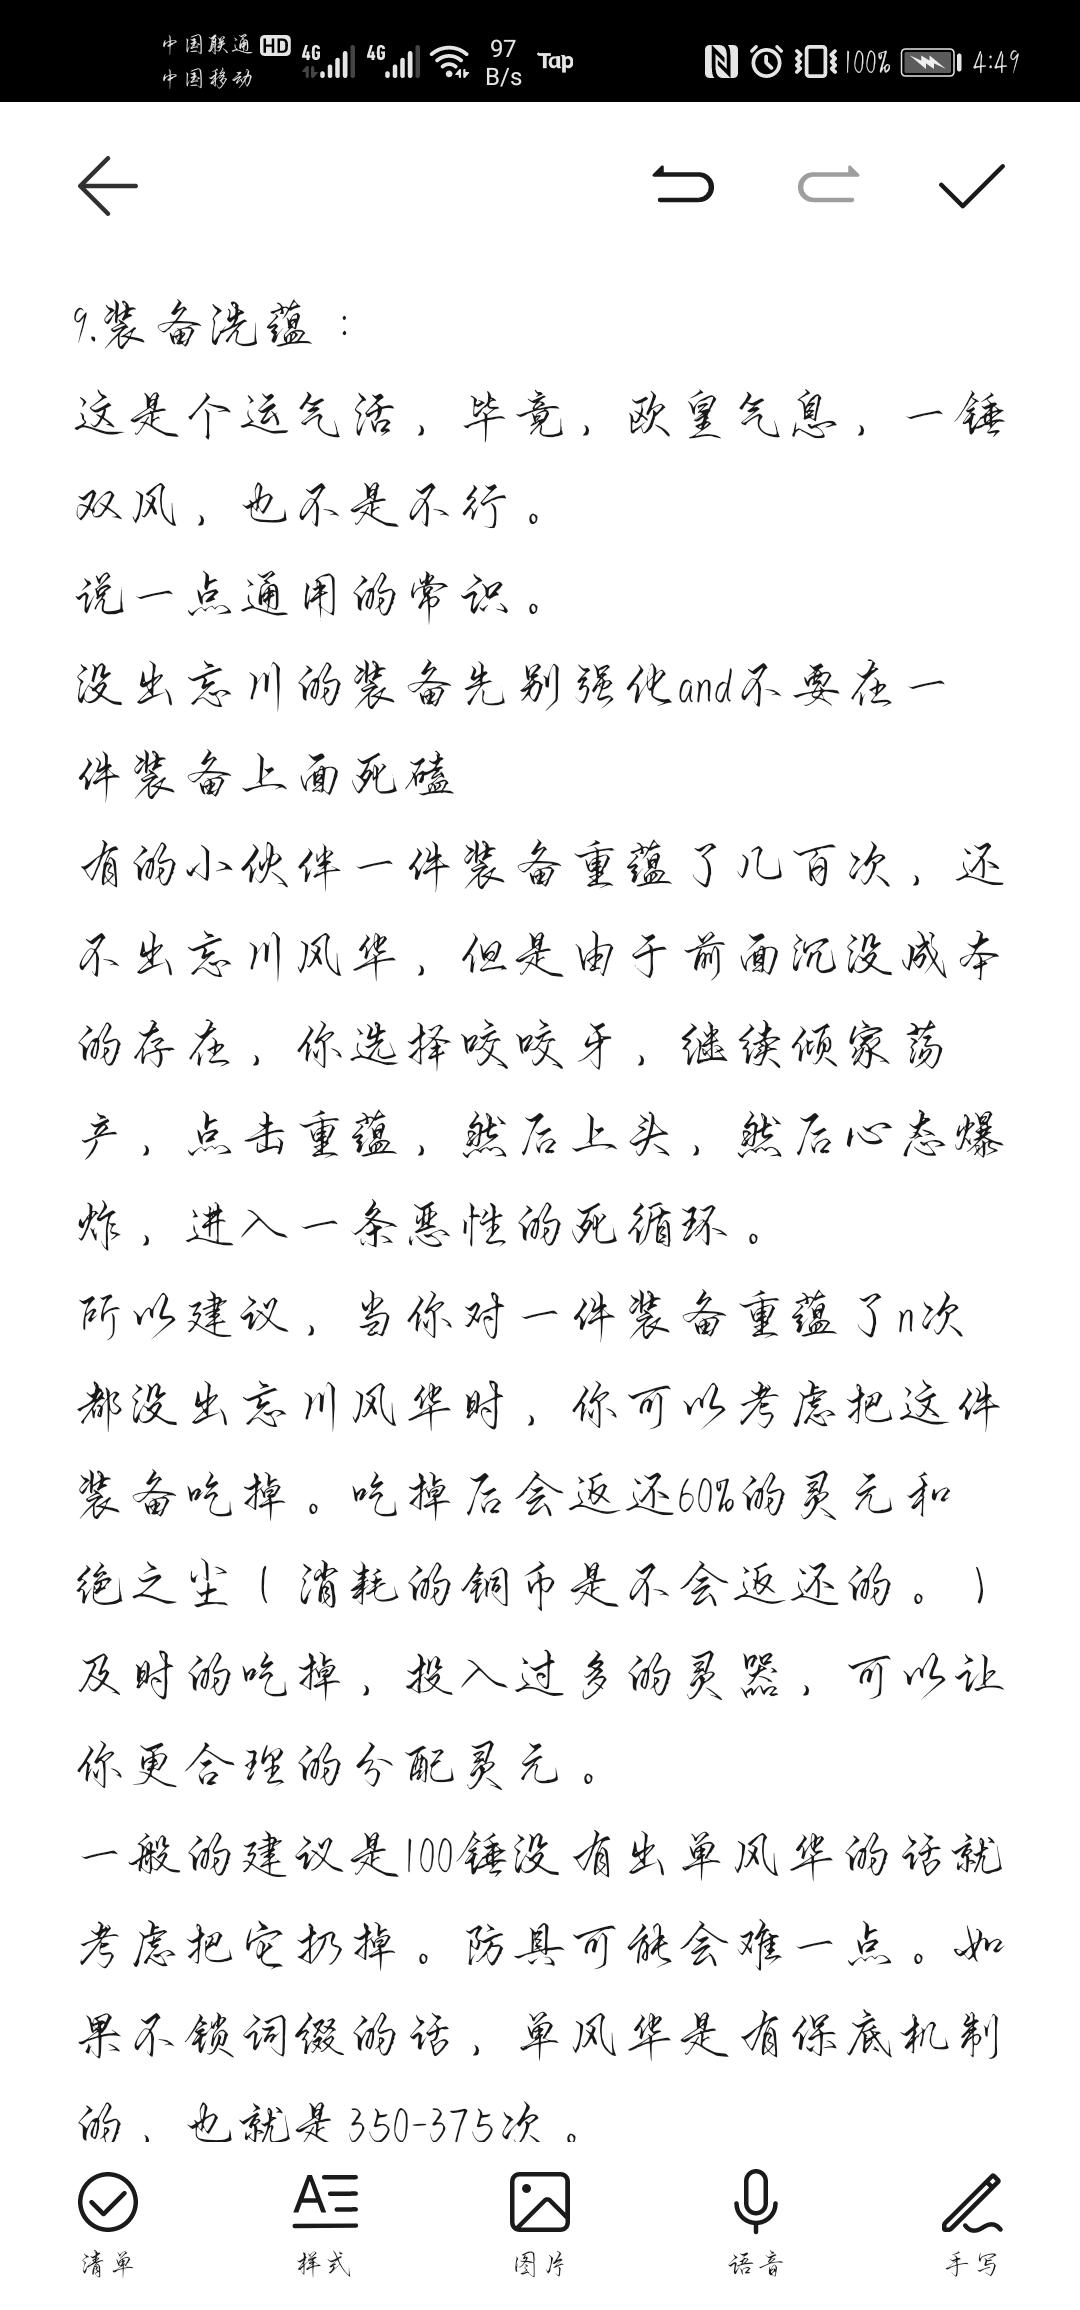 中国联通 HD 4G 4G 97 B/s Tap 100% 4:49
中国移动
9.装备洗蕴：
这是个运气活，毕竟，欧皇气息，一锤
双风，也不是不行。
说一点通用的常识。
没出忘川的装备先别强化and不要在一
件装备上面死磕
有的小伙伴一件装备重蕴了几百次，还
不出忘川风华，但是由于前面沉没成本
的存在，你选择咬咬牙，继续倾家荡
产，点击重蕴，然后上头，然后心态爆
炸，进入一条恶性的死循环。
所以建议，当你对一件装备重蕴了n次
都没出忘川风华时，你可以考虑把这件
装备吃掉。吃掉后会返还60%的灵元和
绝之尘（消耗的铜币是不会返还的。）
及时的吃掉，投入过多的灵器，可以让
你更合理的分配灵元。
一般的建议是100锤没有出单风华的话就
考虑把它扔掉。防具可能会难一点。如
果不锁词缀的话，单风华是有保底机制
的，也就是350-375次。
清单 样式 图片 语音 手写